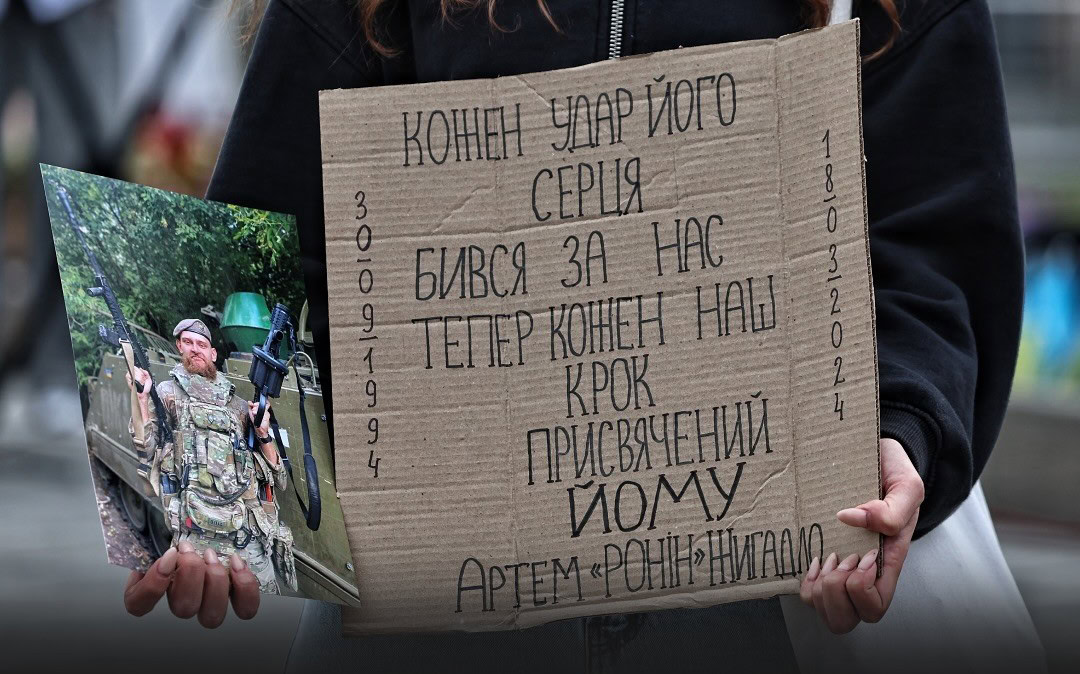 КОЖЕН УДАР ЙОГО
СЕРЦЯ
БИВСЯ ЗА НАС
ТЕПЕР КОЖЕН НАШ
КРОК
ПРИСВЯЧЕНИЙ
ЙОМУ
АРТЕМ «РОНІН» ЖИГАДЛО
30-09-1994
18-03-2024